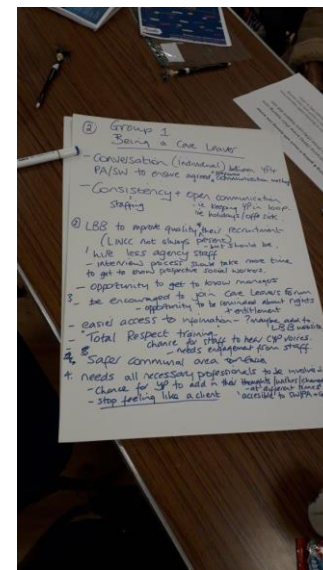 ② Group 1
Being a Care Leaver
- Conversation (individual) between YP +
PA/SW to ensure agreed communication method
- Consistency + open communication
staffing
ie keeping YP in loop.
ie holidays/off sick.
② LBB to improve quality + their recruitment
(LNCC not always present)
- but should be.
- hire less agency staff
- interview process should take more time
to get to know prospective social workers.
- opportunity to get to know managers
3. be encouraged to join Care Leavers Forum
- opportunity to be reminded about rights
+ entitlement
- easier access to information - ? maybe add to
LBB website
- Total Respect training -
chance for staff to hear CYP voices.
- needs engagement from staff.
Safer communal area
4. needs all necessary professionals to be involved
- Chance for YP to add in their thoughts/wishes/changes
- at different times
- stop feeling like a client
accessible to SW/PA